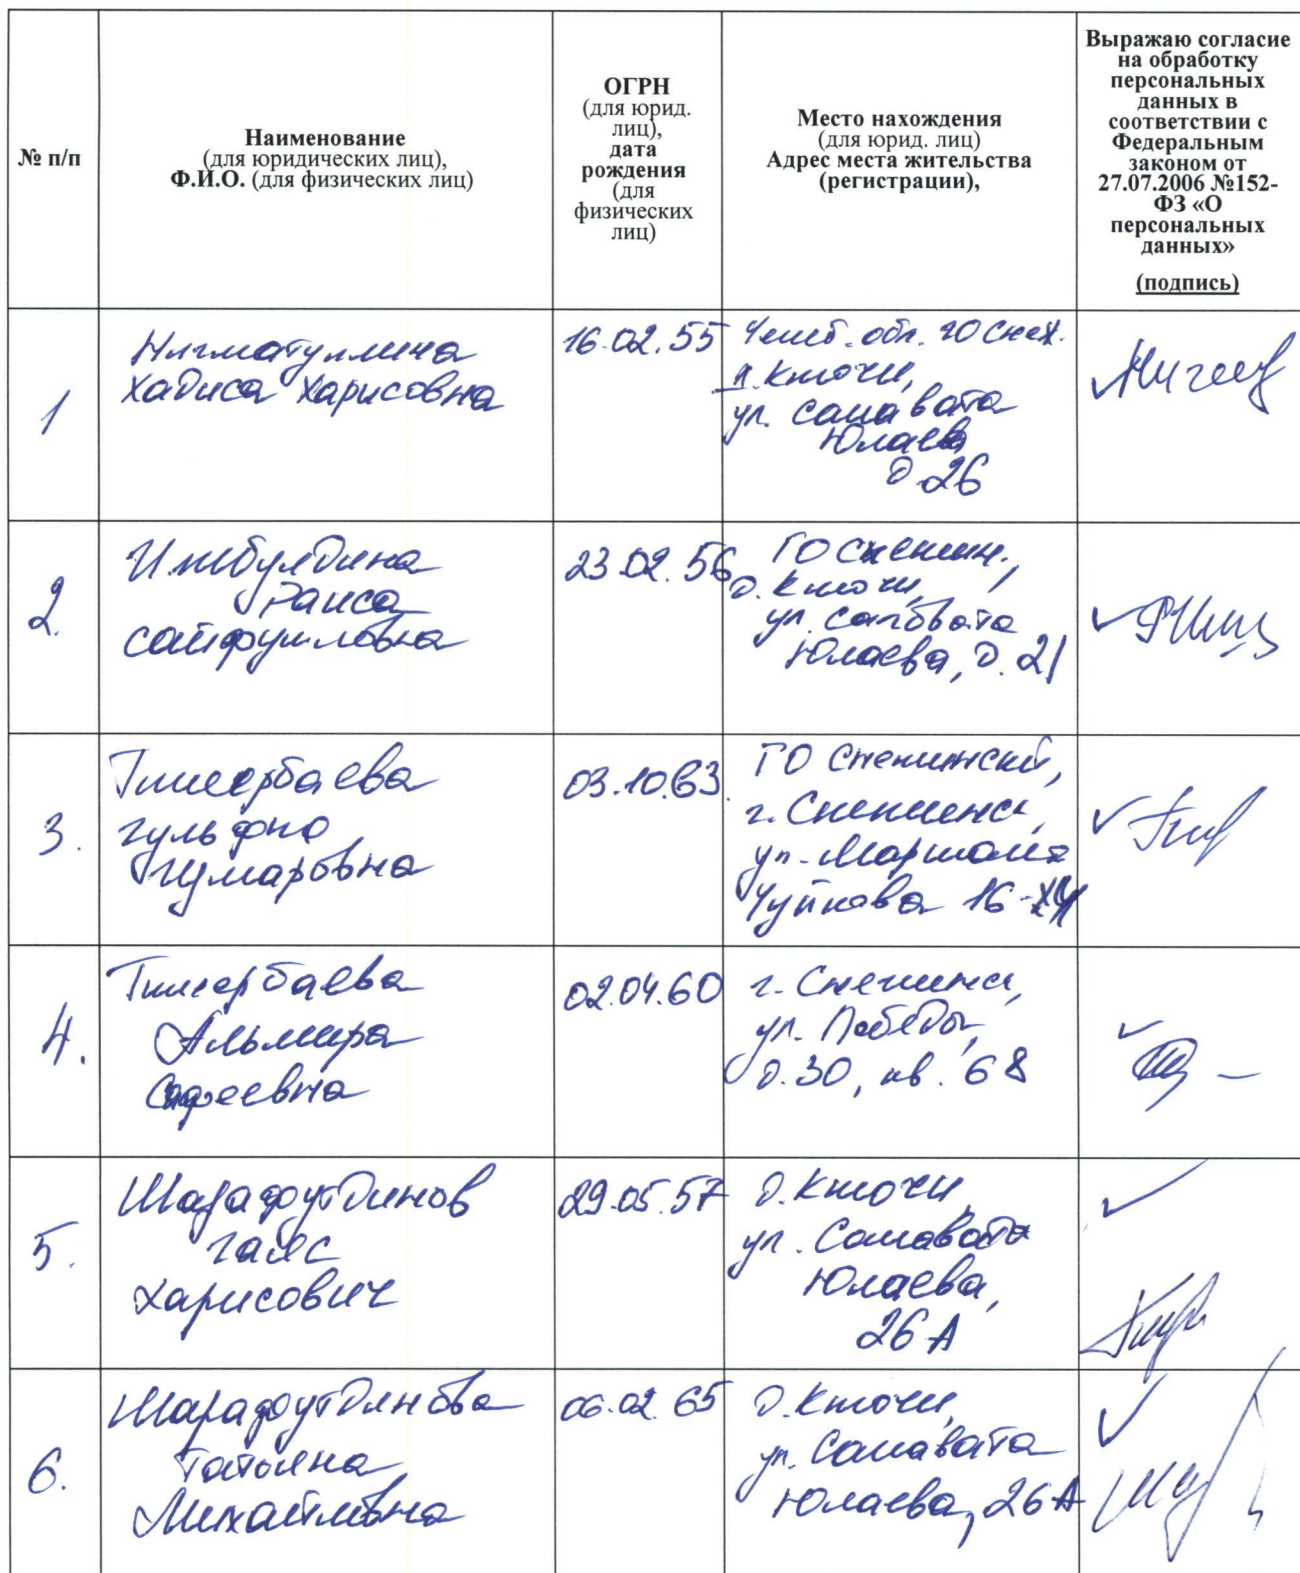 № п/п
Наименование
(для юридических лиц),
Ф.И.О. (для физических лиц)
ОГРН
(для юрид.
лиц),
дата
рождения
(для
физических
лиц)
Место нахождения
(для юрид. лиц)
Адрес места жительства
(регистрации),
Выражаю согласие
на обработку
персональных
данных в
соответствии с
Федеральным
законом от
27.07.2006 №152-
ФЗ «О
персональных
данных»
(подпись)
1
Нигматуллина
Хадиса Харисовна
16.02.55
Челяб. обл. ГО Снеж.
д. Ключи,
ул. Салавата
Юлаева
д. 26
2.
Ишбулдина
Раиса
Сайфулловна
23.02.56
ГО Снежин.,
д. Ключи,
ул. Салавата
Юлаева, д. 21
3.
Тимербаева
Гульфира
Гумаровна
03.10.63
ГО Снежинский,
г. Снежинск,
ул. Маршала
Чуйкова 16-
4.
Тимербаева
Альмира
02.04.60
г. Снежинск,
ул. Победы,
д. 30, кв. 68
5.
Шарафутдинов
Гаяс
Харисович
29.05.57
д. Ключи,
ул. Салавата
Юлаева,
26 А
6.
Шарафутдинова
Татьяна
Михайловна
06.02.65
д. Ключи,
ул. Салавата
Юлаева, 26 А